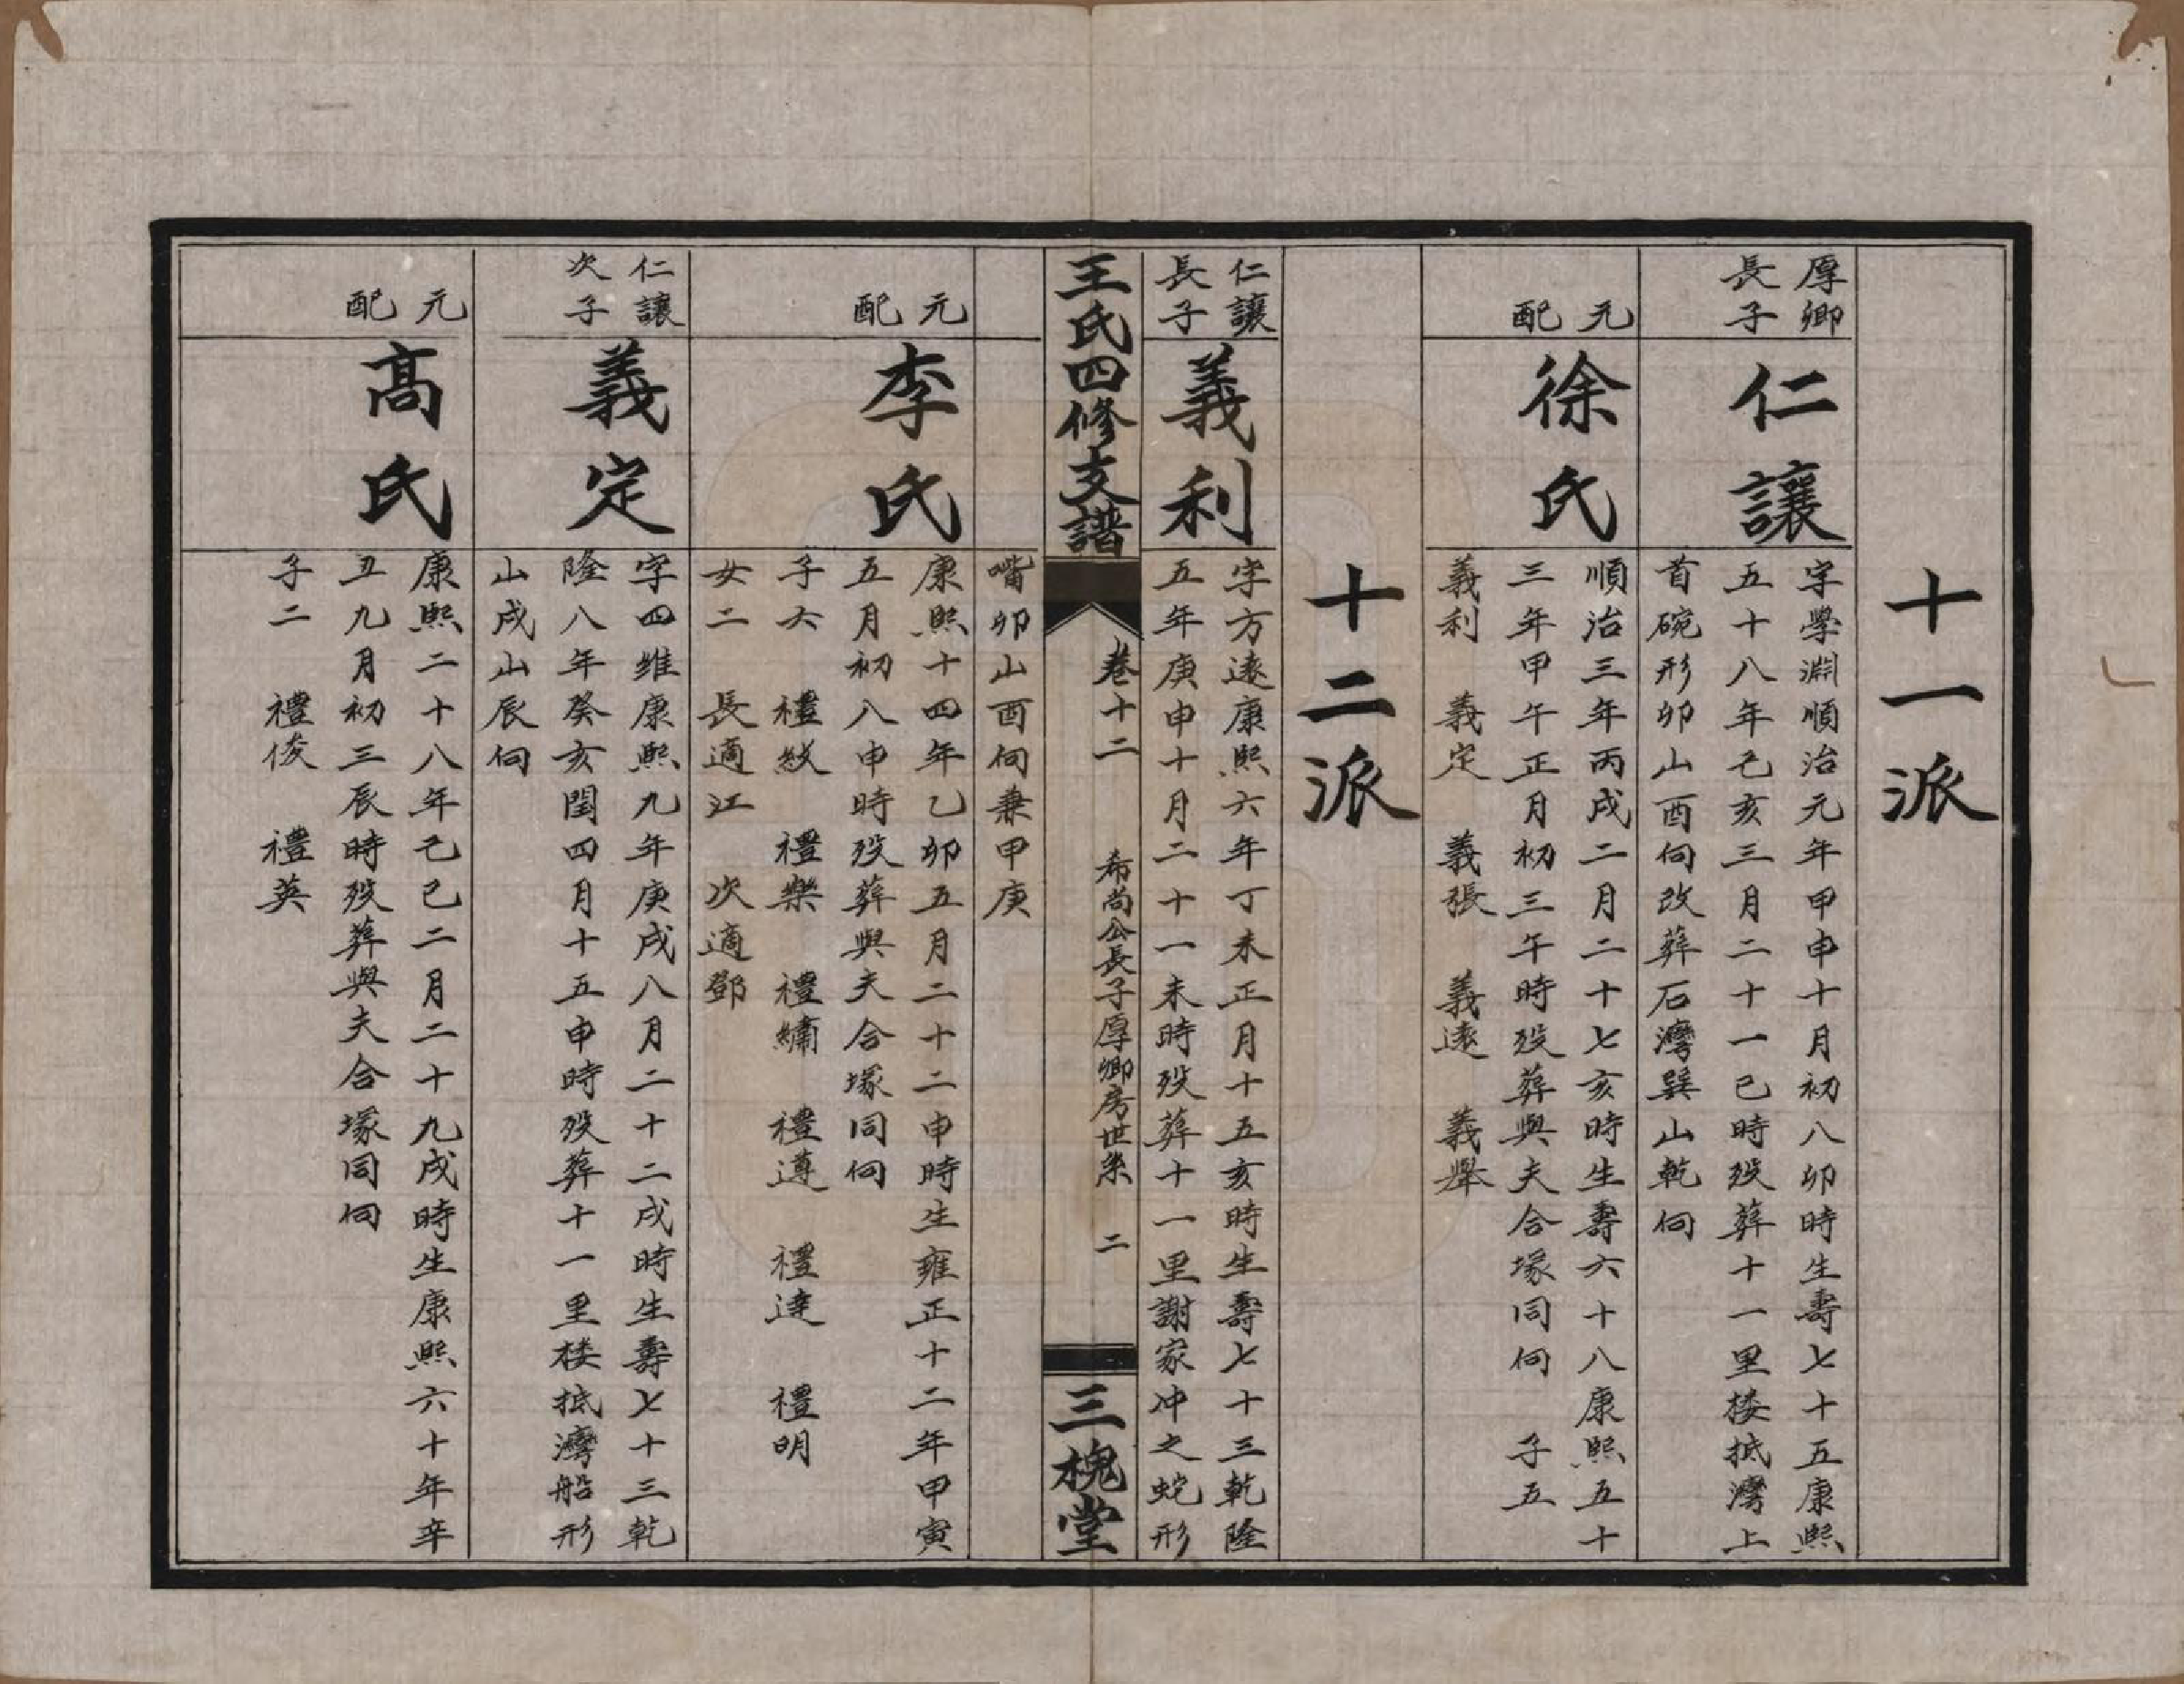 十一派
厚卿
長子
仁讓
字學淵順治元年甲申十月初八卯時生壽七十五康熙
五十八年己亥三月二十一巳時歿葬十一里楼抵灣上
首碗形卯山酉向改葬石灣巽山乾向
元
配
徐氏
順治三年丙戌二月二十七亥時生壽六十八康熙五十
三年甲午正月初三午時歿葬與夫合塚同向 子五
義利 義定 義張 義遠 義舉
十二派
仁讓
長子
義利
字方遠康熙六年丁未正月十五亥時生壽七十三乾隆
五年庚申十月二十一未時歿葬十一里謝家冲之蛇形
王氏四修支譜
卷十二
希尚公長子厚卿房世系
二
三槐堂
嘴卯山酉向兼甲庚
元
配
李氏
康熙十四年乙卯五月二十二申時生雍正十二年甲寅
五月初八申時歿葬與夫合塚同向
子六 禮紋 禮樂 禮繡 禮遵 禮達 禮明
女二 長適江 次適鄧
仁讓
次子
義定
字四維康熙九年庚戌八月二十二戌時生壽七十三乾
隆八年癸亥閏四月十五申時歿葬十一里楼抵灣船形
山戌山辰向
元
配
髙氏
康熙二十八年己巳二月二十九戌時生康熙六十年辛
丑九月初三辰時歿葬與夫合塚同向
子二 禮俊 禮英